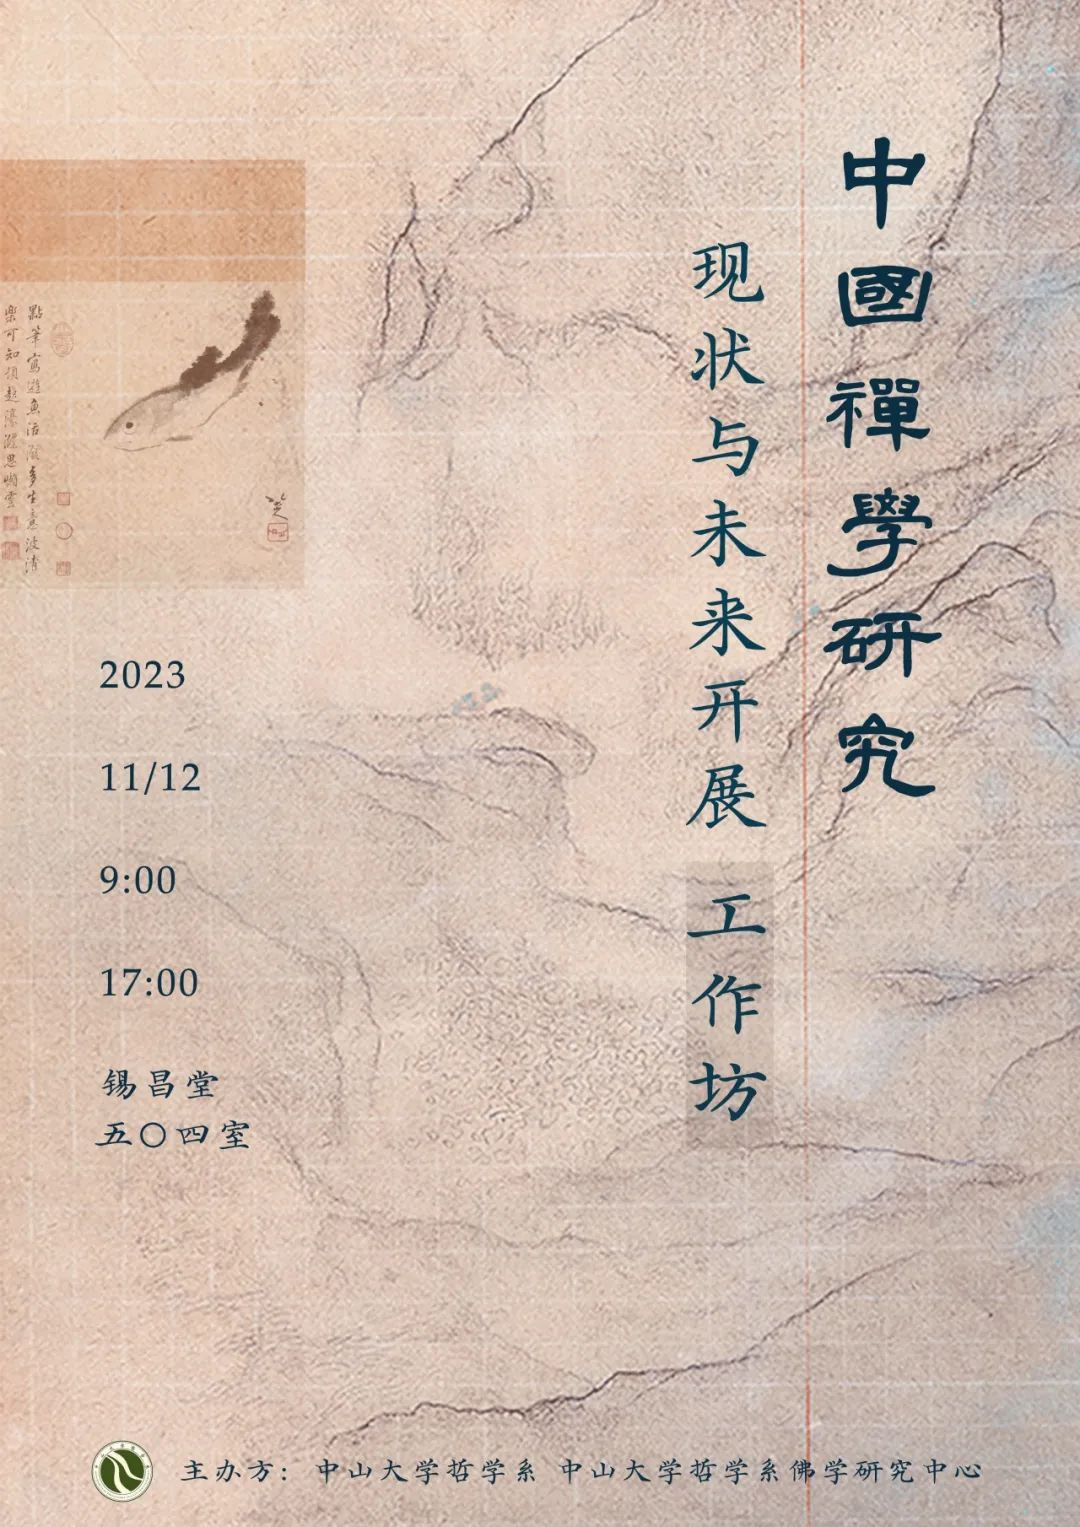 中國禪學研究
现状与未来开展 工作坊
點筆寫遊魚活潑多生意波清
樂可知頓起濠濮思
2023
11/12
9:00
17:00
锡昌堂
五〇四室
主办方：中山大学哲学系 中山大学哲学系佛学研究中心